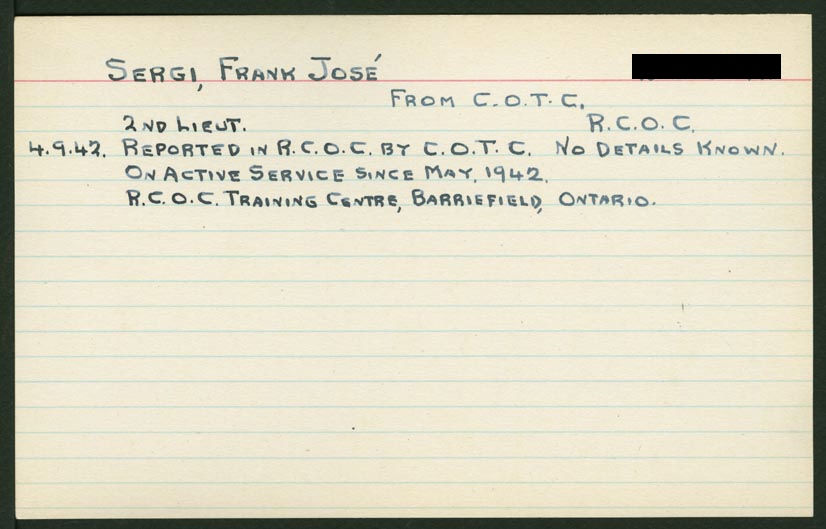 SERGI, FRANK JOSÉ
FROM C.O.T.C.
2ND LIEUT. R.C.O.C.
4.9.42. REPORTED IN R.C.O.C. BY C.O.T.C. NO DETAILS KNOWN.
ON ACTIVE SERVICE SINCE MAY, 1942.
R.C.O.C. TRAINING CENTRE, BARRIEFIELD, ONTARIO.